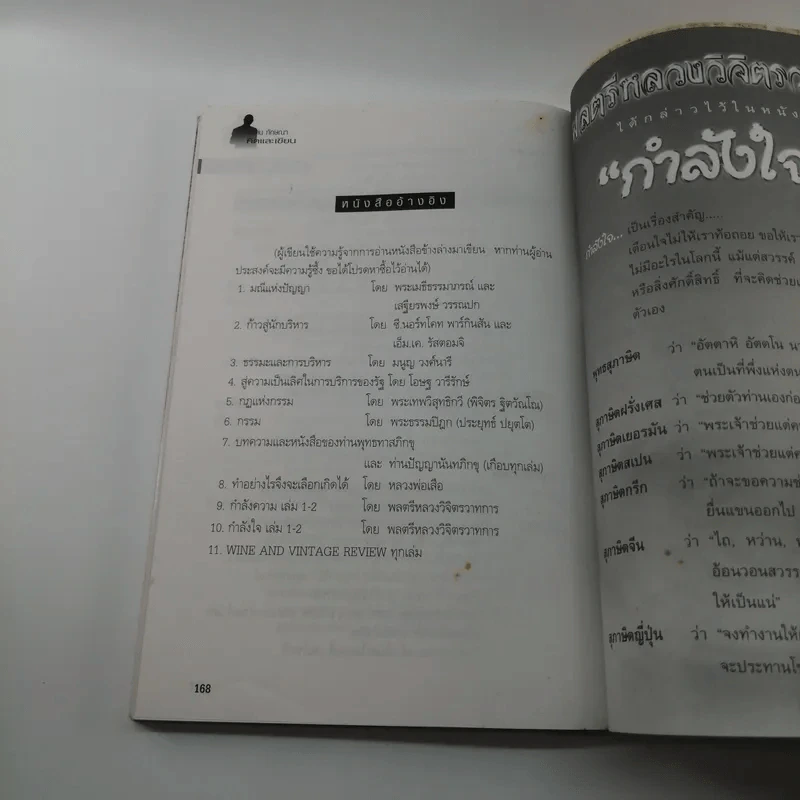 ทักษณา
คิดและเขียน
หนังสืออ้างอิง
(ผู้เขียนใช้ความรู้จากการอ่านหนังสือข้างล่างมาเขียน หากท่านผู้อ่าน
ประสงค์จะมีความรู้ซึ้ง ขอได้โปรดหาซื้อไว้อ่านได้)
1. มณีแห่งปัญญา โดย พระเมธีธรรมาภรณ์ และ
เสฐียรพงษ์ วรรณปก
2. ก้าวสู่นักบริหาร โดย ซี.นอร์ทโคท พาร์กินสัน และ
เอ็ม.เค. รัสตอมจิ
3. ธรรมะและการบริหาร โดย มนูญ วงค์นารี
4. สู่ความเป็นเลิศในการบริการของรัฐ โดย โอษฐ วารีรักษ์
5. กฎแห่งกรรม โดย พระเทพวิสุทธิกวี (พิจิตร ฐิตวัณโณ)
6. กรรม โดย พระธรรมปิฎก (ประยุทธ์ ปยุตโต)
7. บทความและหนังสือของท่านพุทธทาสภิกขุ
และ ท่านปัญญานันทภิกขุ (เกือบทุกเล่ม)
8. ทำอย่างไรจึงจะเลือกเกิดได้ โดย หลวงพ่อเสือ
9. กำลังความ เล่ม 1-2 โดย พลตรีหลวงวิจิตรวาทการ
10. กำลังใจ เล่ม 1-2 โดย พลตรีหลวงวิจิตรวาทการ
11. WINE AND VINTAGE REVIEW ทุกเล่ม
168
ลตรีหลวงวิจิตรว
ได้กล่าวไว้ในหนัง
"กำลังใจ
กำลังใจ... เป็นเรื่องสำคัญ.....
เตือนใจไม่ให้เราท้อถอย ขอให้เรา
ไม่มีอะไรในโลกนี้ แม้แต่สวรรค์
หรือสิ่งศักดิ์สิทธิ์ ที่จะคิดช่วยเ
ตัวเอง
พุทธสุภาษิต ว่า "อัตตาหิ อัตตโน นา
ตนเป็นที่พึ่งแห่งตน
สุภาษิตฝรั่งเศส ว่า "ช่วยตัวท่านเองก่อ
สุภาษิตเยอรมัน ว่า "พระเจ้าช่วยแต่ค
สุภาษิตสเปน ว่า "พระเจ้าช่วยแต่ค
สุภาษิตกรีก ว่า "ถ้าจะขอความช
ยื่นแขนออกไป
สุภาษิตจีน ว่า "ไถ, หว่าน,
อ้อนวอนสวรร
ให้เป็นแน่"
สุภาษิตญี่ปุ่น ว่า "จงทำงานให้
จะประทานโช